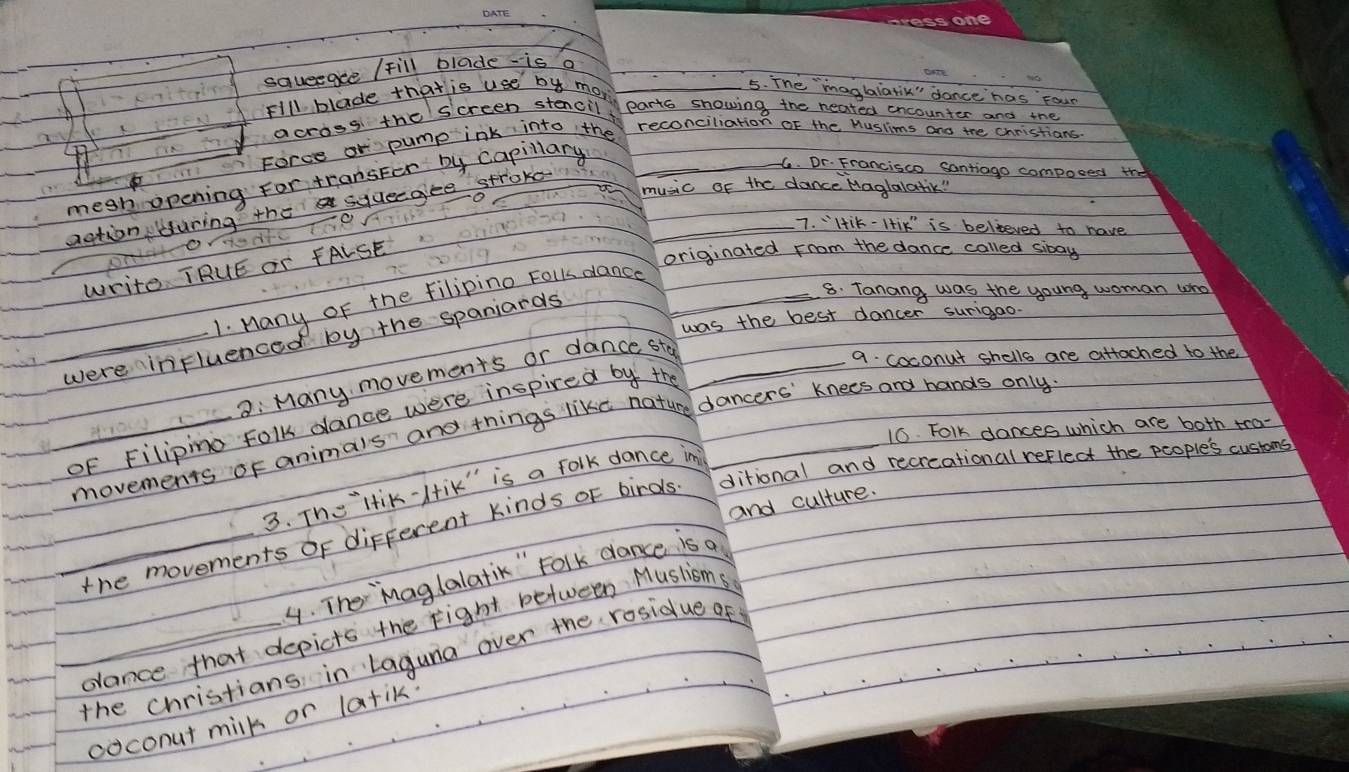 DATE
squeegee / Fill blade - is a
Fill blade that is use by
across the screen stencil
Force or pump ink into the
mesh opening For transFer by capillary
action during the squeegee stroke
write TRUE or FALSE
1. Many OF the Filipino Folk dance
were influenced by the spaniards
2. Many movements or dance
OF Filipino Folk dance were inspired by the
movements OF animals and things like nature
3. The "Itik-Itik" is a Folk dance
the movements OF diFFerent kinds OF birds.
4. The "Maglalatik" Folk dance is a
dance that depicts the Fight between Muslisms
the christians in Laguna over the rosidue OF
coconut milk or latik.
ress one
DATE NO
5. The "maglalatik" dance has Four
parts snowing the heated encounter and the
reconciliation OF the Muslims and the christians.
6. Dr. Francisco Santiago composed the
music OF the dance "Maglalatik"
7. "Itik-Itik" is beleeved to have
originated From the dance called sibay
8. Tanang was the young woman who
was the best dancer surigao.
9. coconut shells are attached to the
dancers' Knees and hands only.
10. Folk dances which are both tra-
ditional and recreational reFlect the people's customs
and culture.